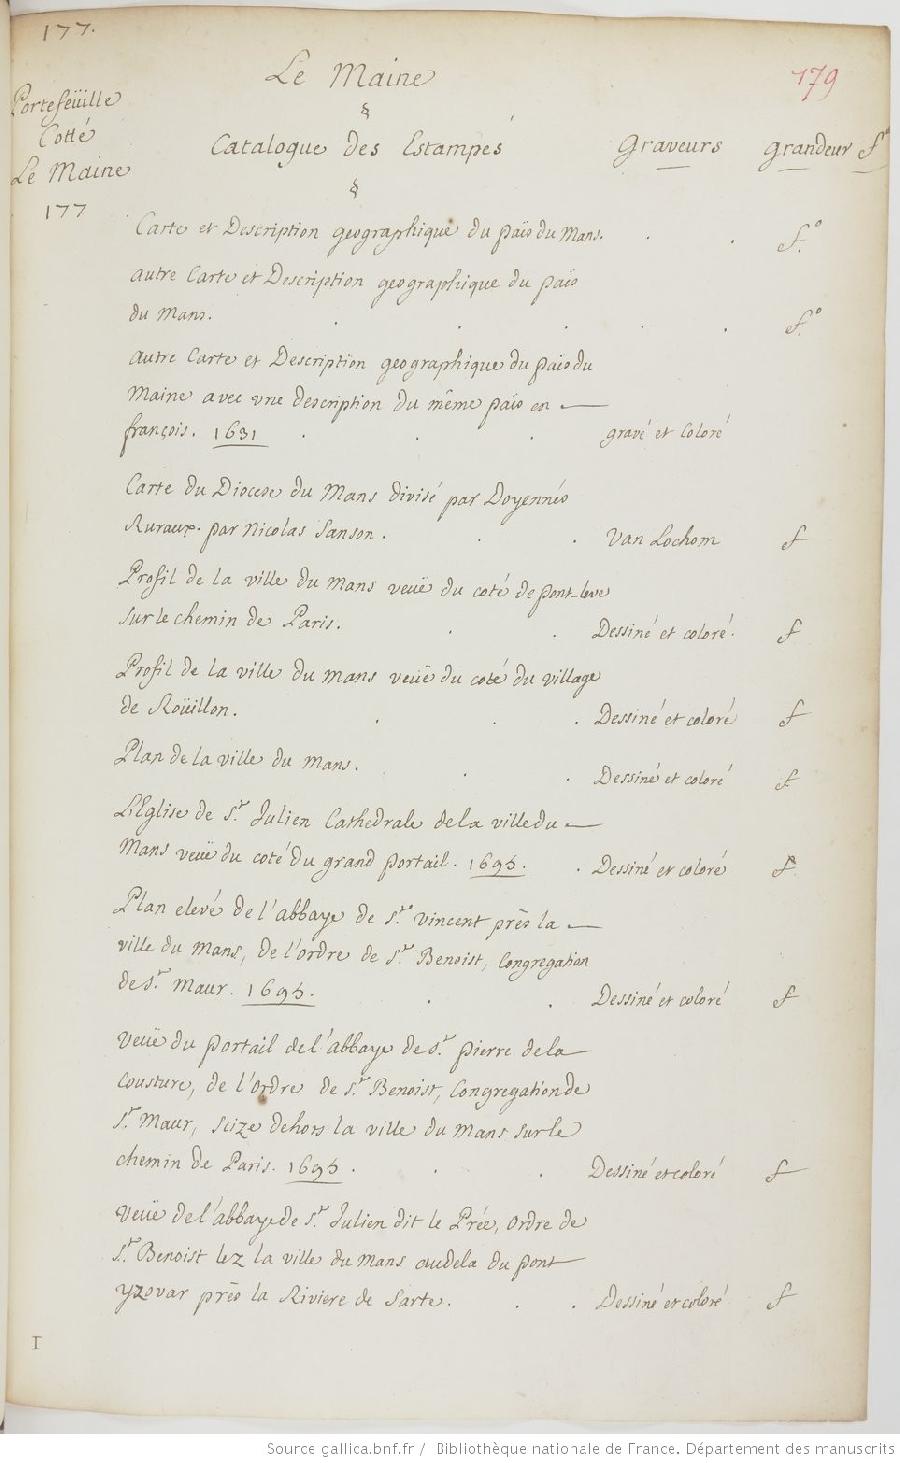 177.
Le Maine
179
§
Portefeüille
Cotté
Le Maine
177
Catalogue des Estampes Graveurs grandeur f°
§
Carte et Description geographique du païs du Mans. . . f.°
autre Carte et Description geographique du païs
du Mans. . . . . . f.°
autre Carte et Description geographique du païs du
Maine avec vne description du même païs en —
françois. 1631 . . . gravé et Coloré
Carte du Diocese du Mans divisé par Doyennés
Ruraux. par Nicolas Sanson. . . Van Lochom f
Profil de la ville du Mans veuë du coté de pont-leve
sur le chemin de Paris. . . Dessiné et coloré. f
Profil de la ville du Mans veuë du coté du village
de Roüillon. . . . Dessiné et coloré f
Plan de la ville du Mans. . . Dessiné et coloré f.
L'Eglise de S.t Julien Cathedrale de la ville du —
Mans veuë du coté du grand portail. 1695. . Dessiné et coloré f
Plan elevé de l'abbaye de S.te vincent près la —
ville du Mans, de l'ordre de S.t Benoist, Congregation
de S.t Maur. 1695. . . Dessiné et coloré f
veuë du portail de l'abbaye de S.t pierre de la
Cousture, de l'ordre de S.t Benoist, Congregation de
S.t Maur, scize dehors la ville du Mans sur le
chemin de Paris. 1695. . . Dessiné et coloré f
veuë de l'abbaye de S.t Julien dit le Prée, ordre de
S.t Benoist lez la ville du Mans audela du pont
yzovar près la Riviere de Sarte. . . Dessiné et coloré f
I
Source gallica.bnf.fr / Bibliothèque nationale de France. Département des manuscrits